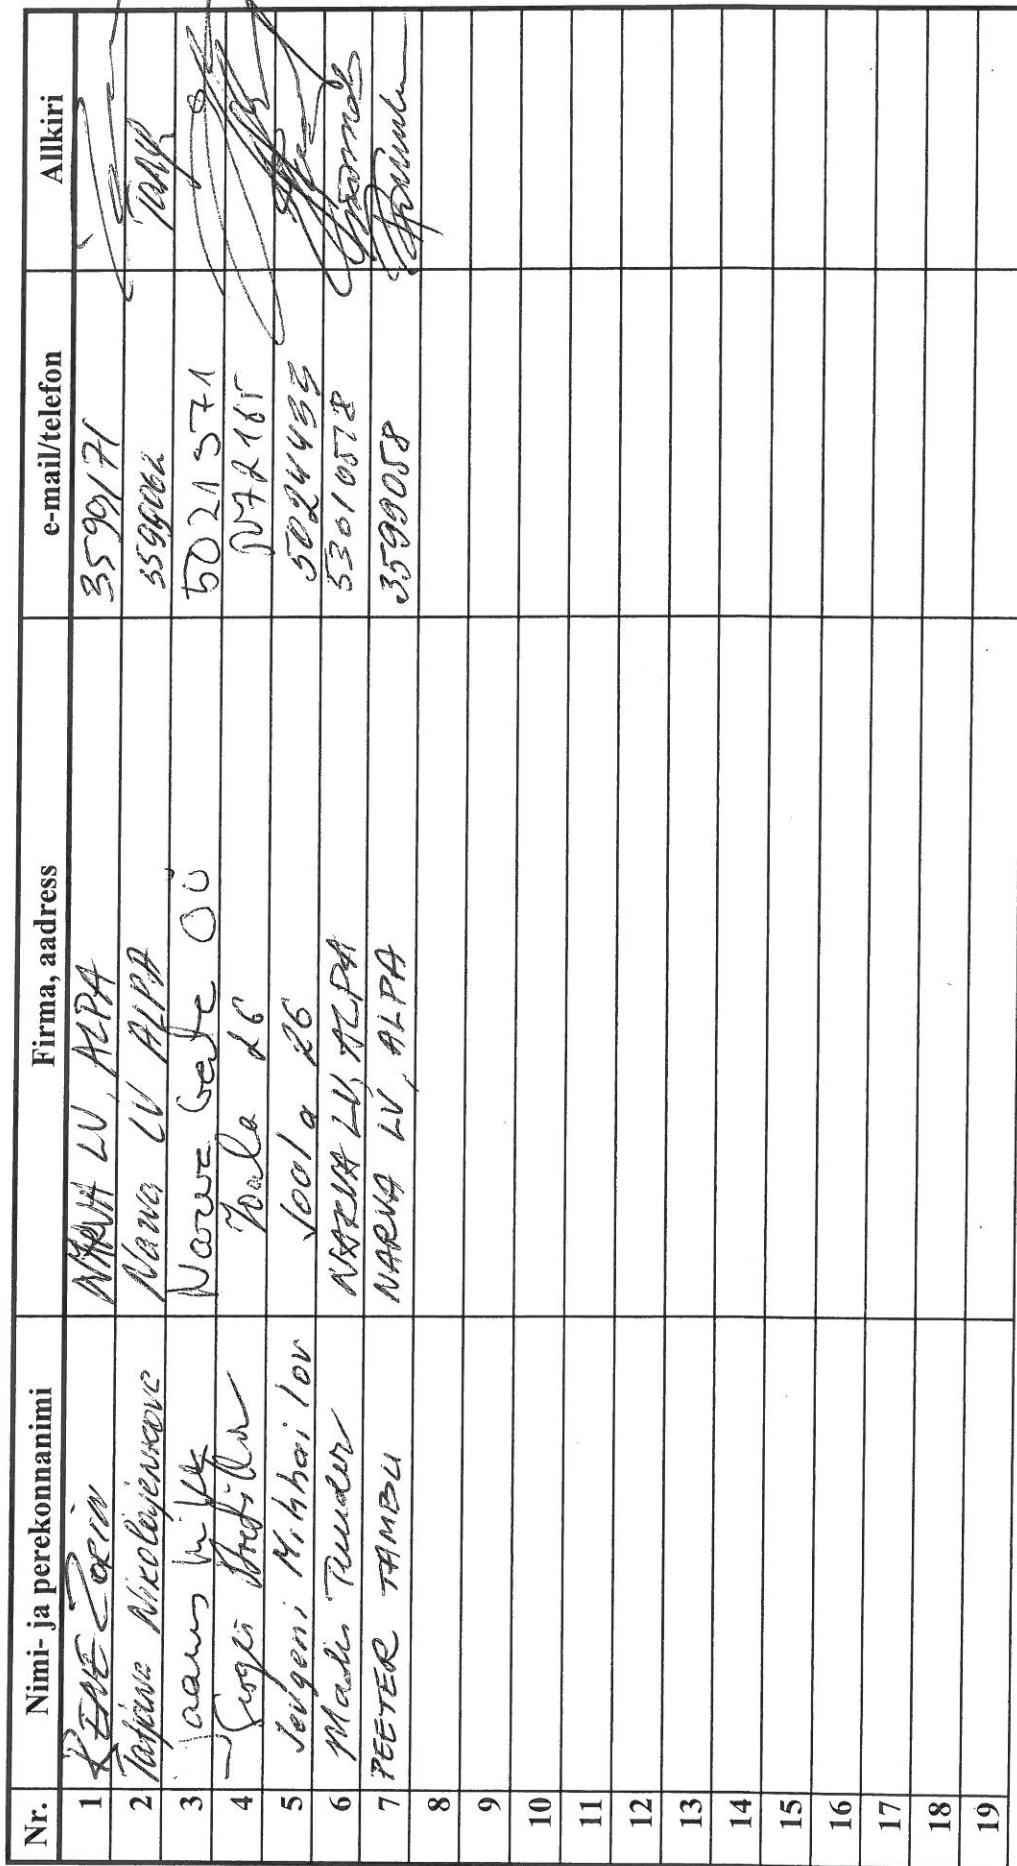 Nr. Nimi- ja perekonnanimi Firma, aadress e-mail/telefon Allkiri
1 RENE ZORIN NARVA LV, ALPA 3599171
2 Tatjana Narva LV ALPA
3 Jaanus Narva Gate OÜ 5021371
4 Sergei Joala 26
5 Jevgeni Mihhailov Joala 26
6 Madis Tuuder NARVA LV, ALPA 53010578
7 PEETER TAMBU NARVA LV, ALPA 3599058
8
9
10
11
12
13
14
15
16
17
18
19